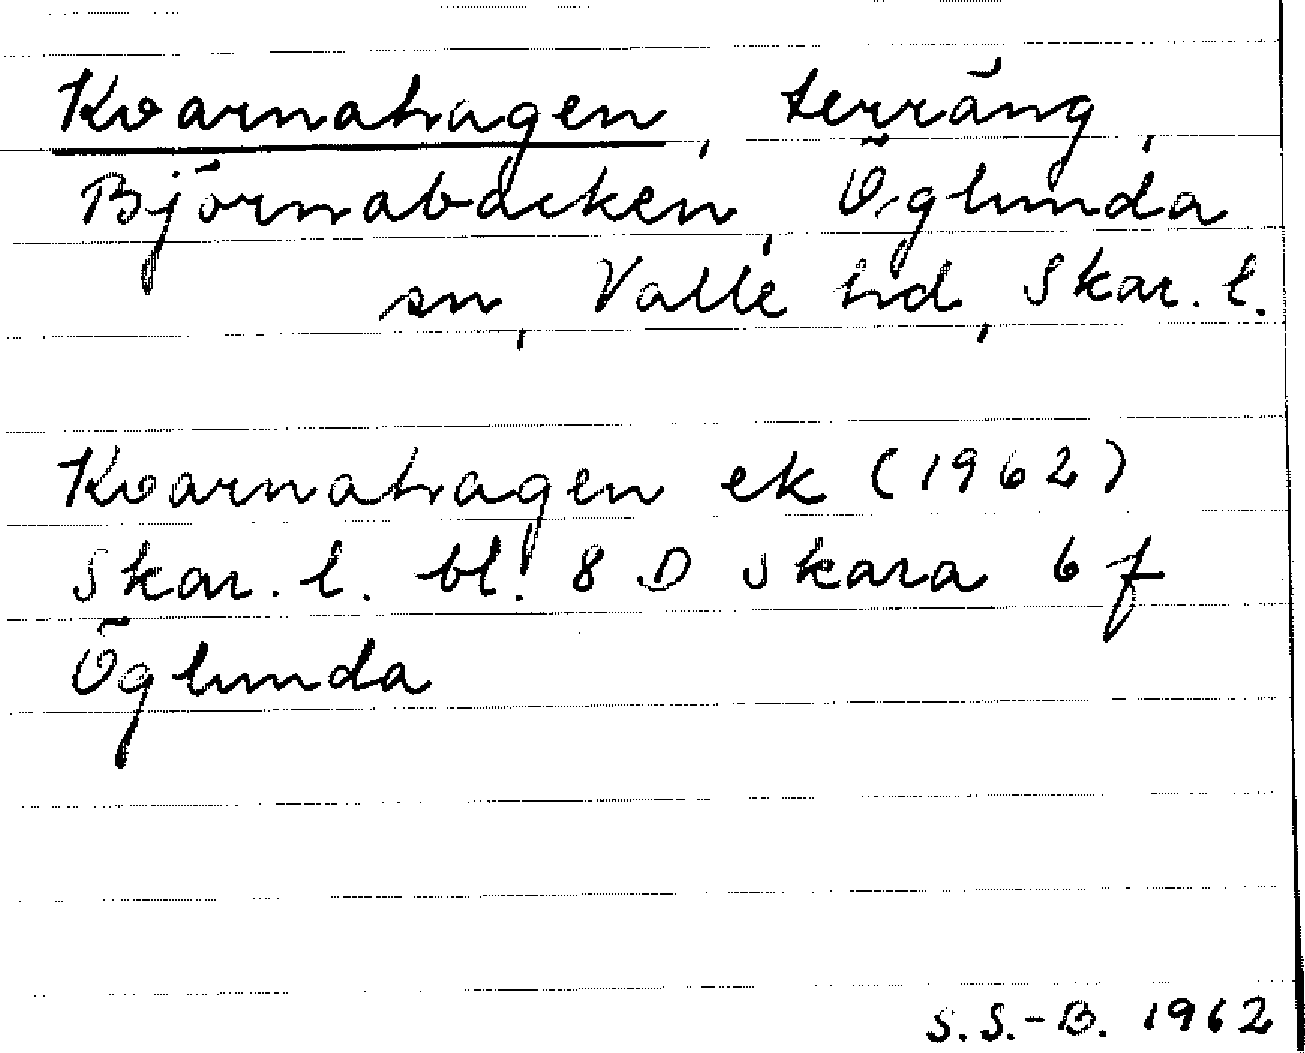 Kvarnahagen, terräng,
Björnabacken, Öglunda
sn, Valle hd, Skar. l.
Kvarnahagen ek (1962)
Skar. l. bl. 8 D Skara 6 f
Öglunda
S. S.-B. 1962